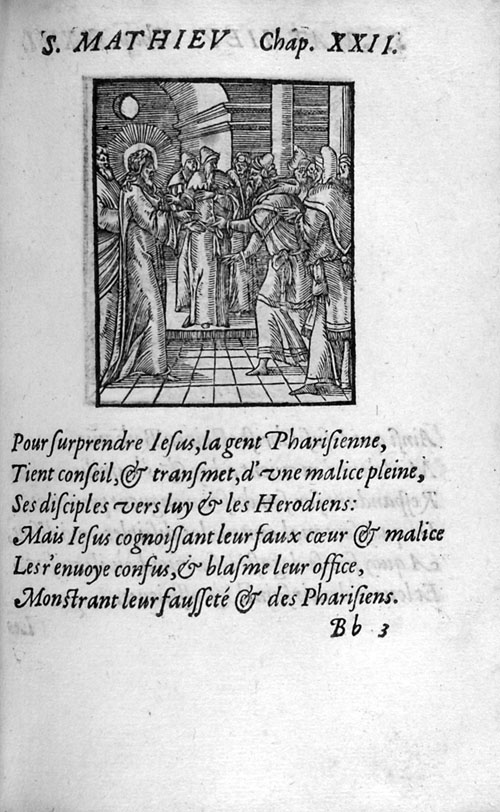 S. MATHIEV Chap. XXII.
Pour surprendre Iesus, la gent Pharisienne,
Tient conseil, & transmet, d'vne malice pleine,
Ses disciples vers luy & les Herodiens:
Mais Iesus cognoissant leur faux cœur & malice
Les r'enuoye confus, & blasme leur office,
Monstrant leur fausseté & des Pharisiens.
Bb 3